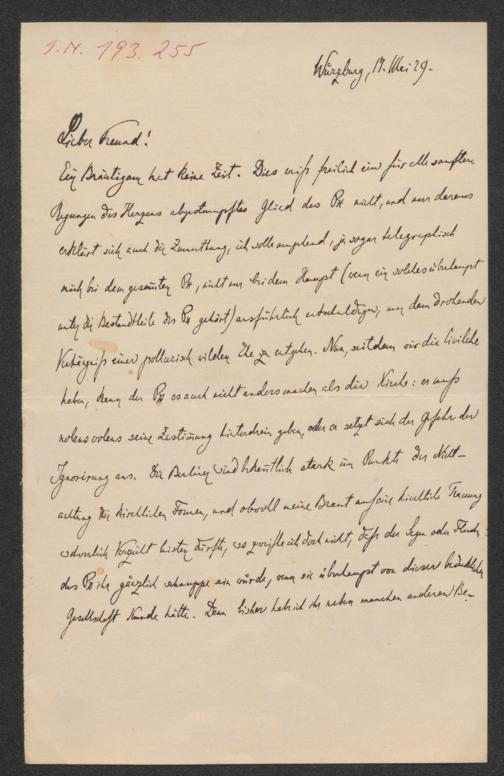 I.N. 193.255
Würzburg, 17. Mai 29.
Lieber Freund!
Ein Bräutigam hat keine Zeit. Dies weiß freilich ein für alle sanften
Regungen des Herzens abgestumpftes Glied des PK nicht, und nur daraus
erklärt sich auch die Zumuthung, ich solle umgehend, ja sogar telegraphisch
mich bei dem gesamten PK, nicht nur bei dem Haupt (wenn ein solches überhaupt
unter die Bestandtheile des PK gehört) ausführlich entschuldigen, um dem drohenden
Verhängniß einer wilden Ehe zu entgehen. Nun, seitdem wir die Civilehe
haben, kann der PK es auch nicht anders machen als die Kirche: er muß
nolens volens seine Zustimmung hinterdrein geben, oder er setzt sich der Gefahr der
Ignorirung aus. Die Berliner sind bekanntlich stark im Punkte der Nicht-
achtung der kirchlichen Formen, und obwohl meine Braut auf eine kirchliche Trauung
Verzicht leisten dürfte, so zweifle ich doch nicht, daß der Segen oder Fluch
des PK ihr gänzlich sein würde, wenn sie überhaupt von dieser
Gesellschaft Kunde hätte. Denn bisher habe ich ihr neben manchen anderen Be-